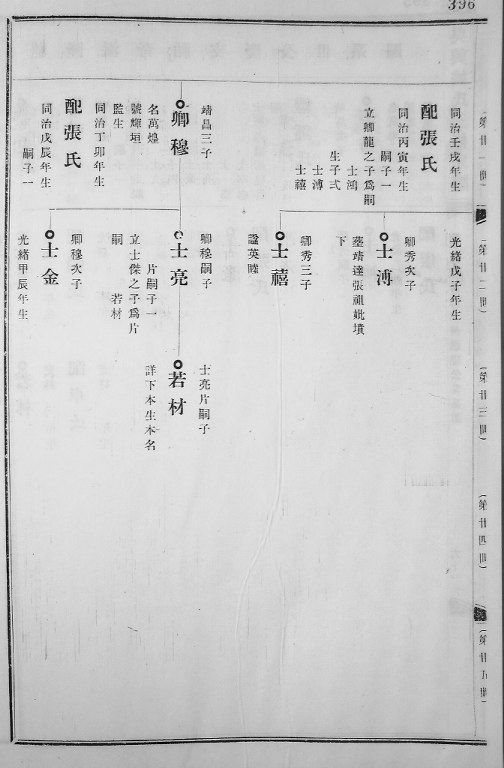 396
(第廿一世)
(第廿二世)
(第廿三世)
(第廿四世)
(第廿五世)
同治壬戌年生
配張氏
同治丙寅年生
嗣子一
立卿龍之子爲嗣
士鴻
生子弍
士溥
士禧
靖昌三子
卿穆
名萬煌
號輝垣
監生
同治丁卯年生
配張氏
同治戊辰年生
嗣子一
光緒戊子年生
卿秀次子
士溥
塟靖達張祖妣墳
下
卿秀三子
士禧
諡英睦
卿穆嗣子
士亮
片嗣子一
立士傑之子爲片
嗣
若材
卿穆次子
士金
光緒甲辰年生
士亮片嗣子
若材
詳下本生本名